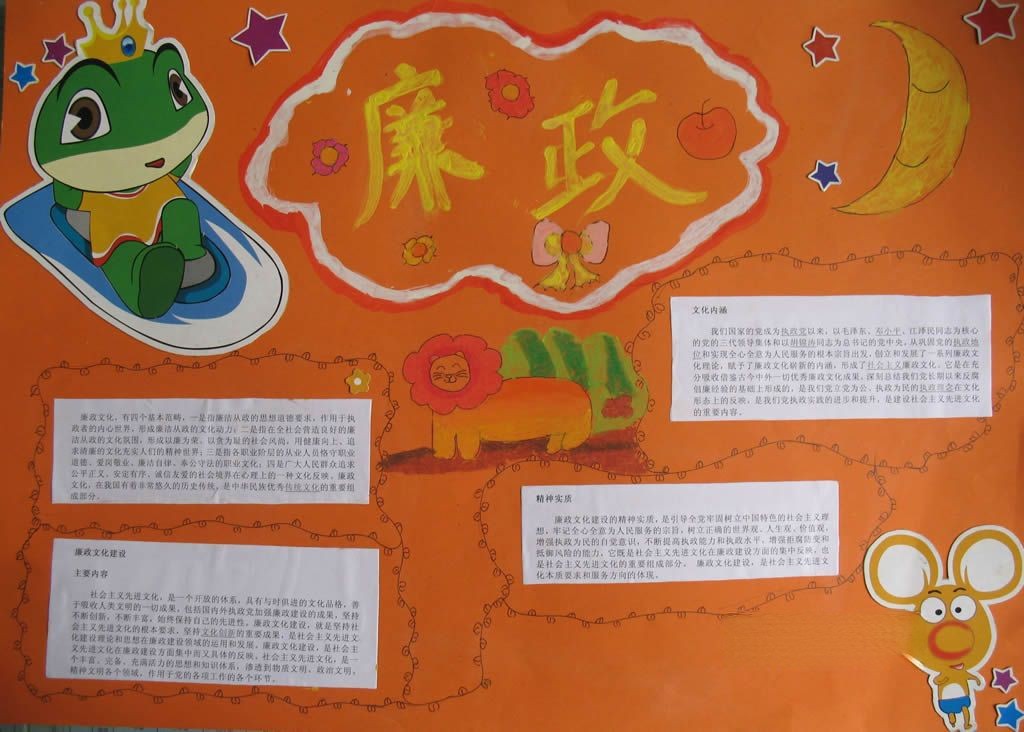 廉政
文化内涵
我们国家的党成为执政党以来，以毛泽东、邓小平、江泽民同志为核心
的党的三代领导集体和以胡锦涛同志为总书记的党中央，从巩固党的执政地
位和实现全心全意为人民服务的根本宗旨出发，创立和发展了一系列廉政文
化理论，赋予了廉政文化崭新的内涵，形成了社会主义廉政文化。它是在充
分吸收借鉴古今中外一切优秀廉政文化成果，深刻总结我们党长期以来反腐
倡廉经验的基础上形成的，是我们党立党为公、执政为民的执政理念在文化
形态上的反映，是我们党执政实践的进步和提升，是建设社会主义先进文化
的重要内容。
廉政文化，有四个基本范畴，一是指廉洁从政的思想道德要求，作用于执
政者的内心世界，形成廉洁从政的文化动力；二是指在全社会营造良好的廉
洁从政的文化氛围，形成以廉为荣，以贪为耻的社会风尚，用健康向上、追
求清廉的文化充实人们的精神世界；三是指各职业阶层的从业人员恪守职业
道德、爱岗敬业、廉洁自律、奉公守法的职业文化；四是广大人民群众追求
公平正义、安定有序、诚信友爱的社会境界在心理上的一种文化反映。廉政
文化，在我国有着非常悠久的历史传统，是中华民族优秀传统文化的重要组
成部分。
精神实质
廉政文化建设的精神实质，是引导全党牢固树立中国特色的社会主义理
想，牢记全心全意为人民服务的宗旨，树立正确的世界观、人生观、价值观，
增强执政为民的自觉意识，不断提高执政能力和执政水平，增强拒腐防变和
抵御风险的能力，它既是社会主义先进文化在廉政建设方面的集中反映，也
是社会主义先进文化的重要组成部分。 廉政文化建设，是社会主义先进文
化本质要求和服务方向的体现。
廉政文化建设
主要内容
社会主义先进文化，是一个开放的体系，具有与时俱进的文化品格，善
于吸收人类文明的一切成果，包括国内外执政党加强廉政建设的成果，坚持
不断创新，不断丰富，始终保持自己的先进性。廉政文化建设，就是坚持社
会主义先进文化的根本要求，坚持文化创新的重要成果，是社会主义先进文
化建设理论和思想在廉政建设领域的运用和发展。廉政文化建设，是社会主
义先进文化在廉政建设方面集中而又具体的反映。社会主义先进文化，是一
个丰富、完备、充满活力的思想和知识体系，渗透到物质文明、政治文明、
精神文明各个领域，作用于党的各项工作的各个环节。